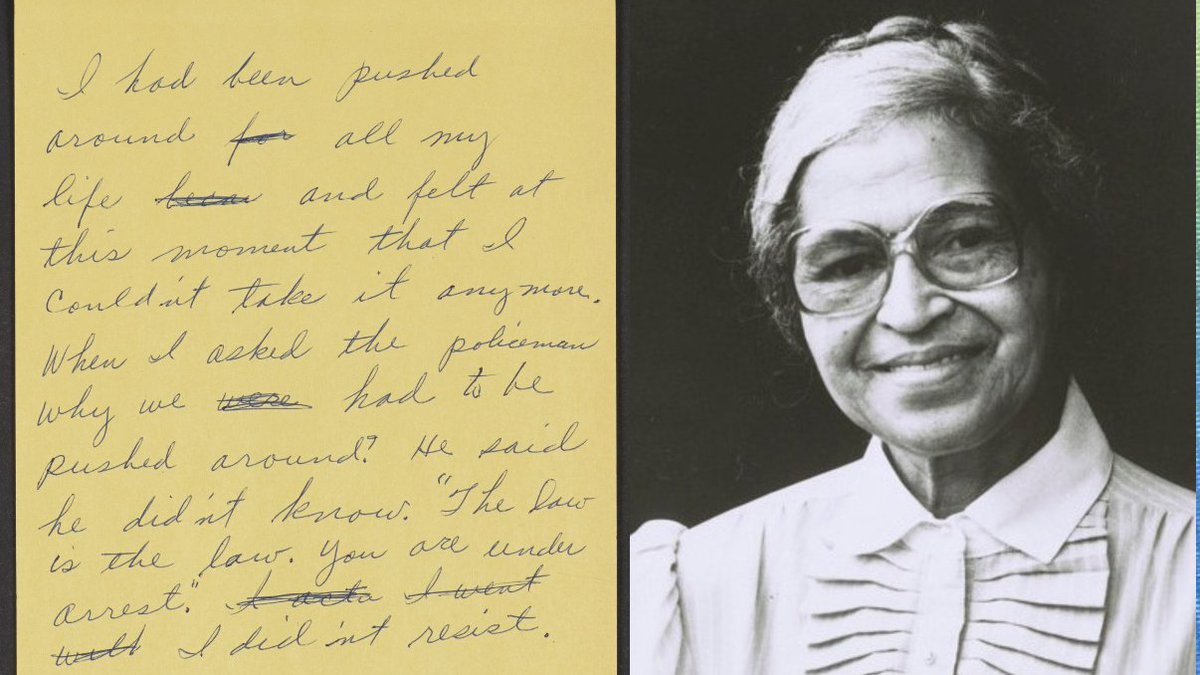 I had been pushed
around for all my
life and felt at
this moment that I
could'nt take it anymore.
When I asked the policeman
why we were had to be
pushed around? He said
he did'nt know. "The law
is the law. You are under
arrest." I went
I did'nt resist.